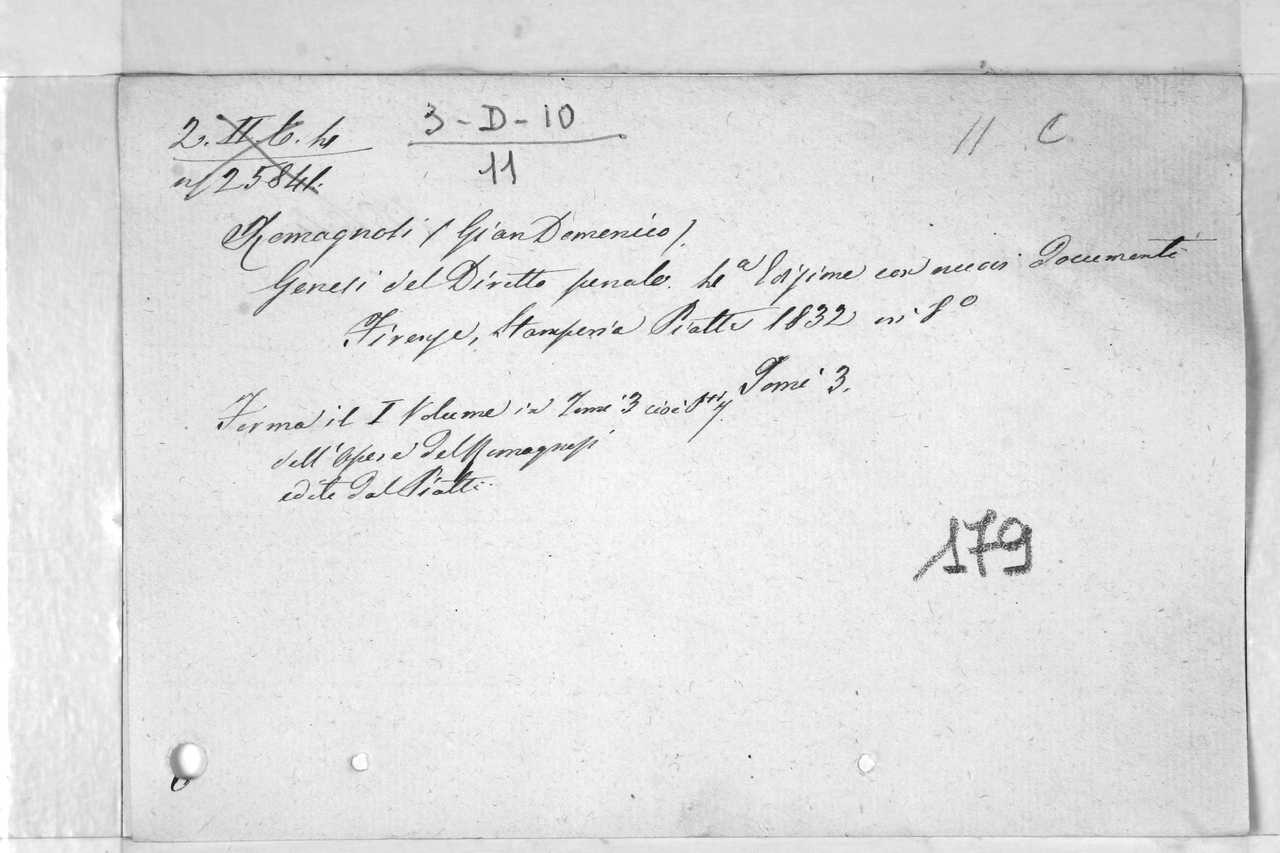 2. II. C. 4
3-D-10
11 C
nº 25841.
11
Romagnosi (Gian Domenico).
Genesi del Diritto penale. 4ª Edizione con nuovi Documenti
Firenze, Stamperia Piatti 1832 in 8º
Tomi 3.
Forma il I Volume in Tomi 3 cioè
dell'Opere del Romagnosi
edite dal Piatti.
179